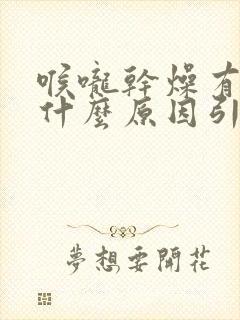 喉嚨幹燥有
什麼原因引
夢想要開花